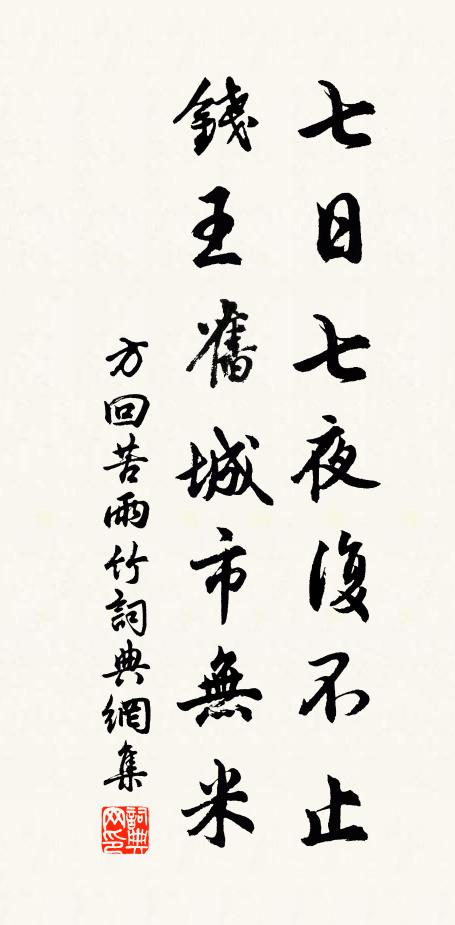 七日七夜復不止
錢王舊城市無米
方回苦雨行詞典網集
詞典网印